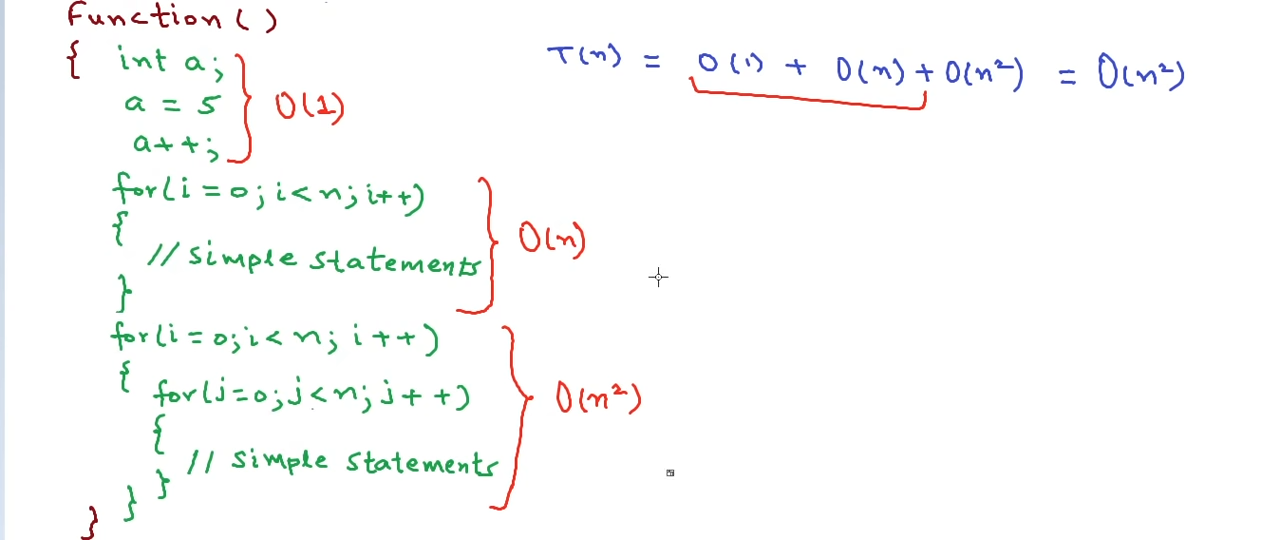 Function()
{ int a;
a = 5
a++;
O(1)
for(i=0;i<n;i++)
{
// simple statements
}
O(n)
for(i=0;i<n;i++)
{
for(j=0;j<n;j++)
{
// simple statements
}
}
}
O(n²)
T(n) = O(1) + O(n) + O(n²) = O(n²)